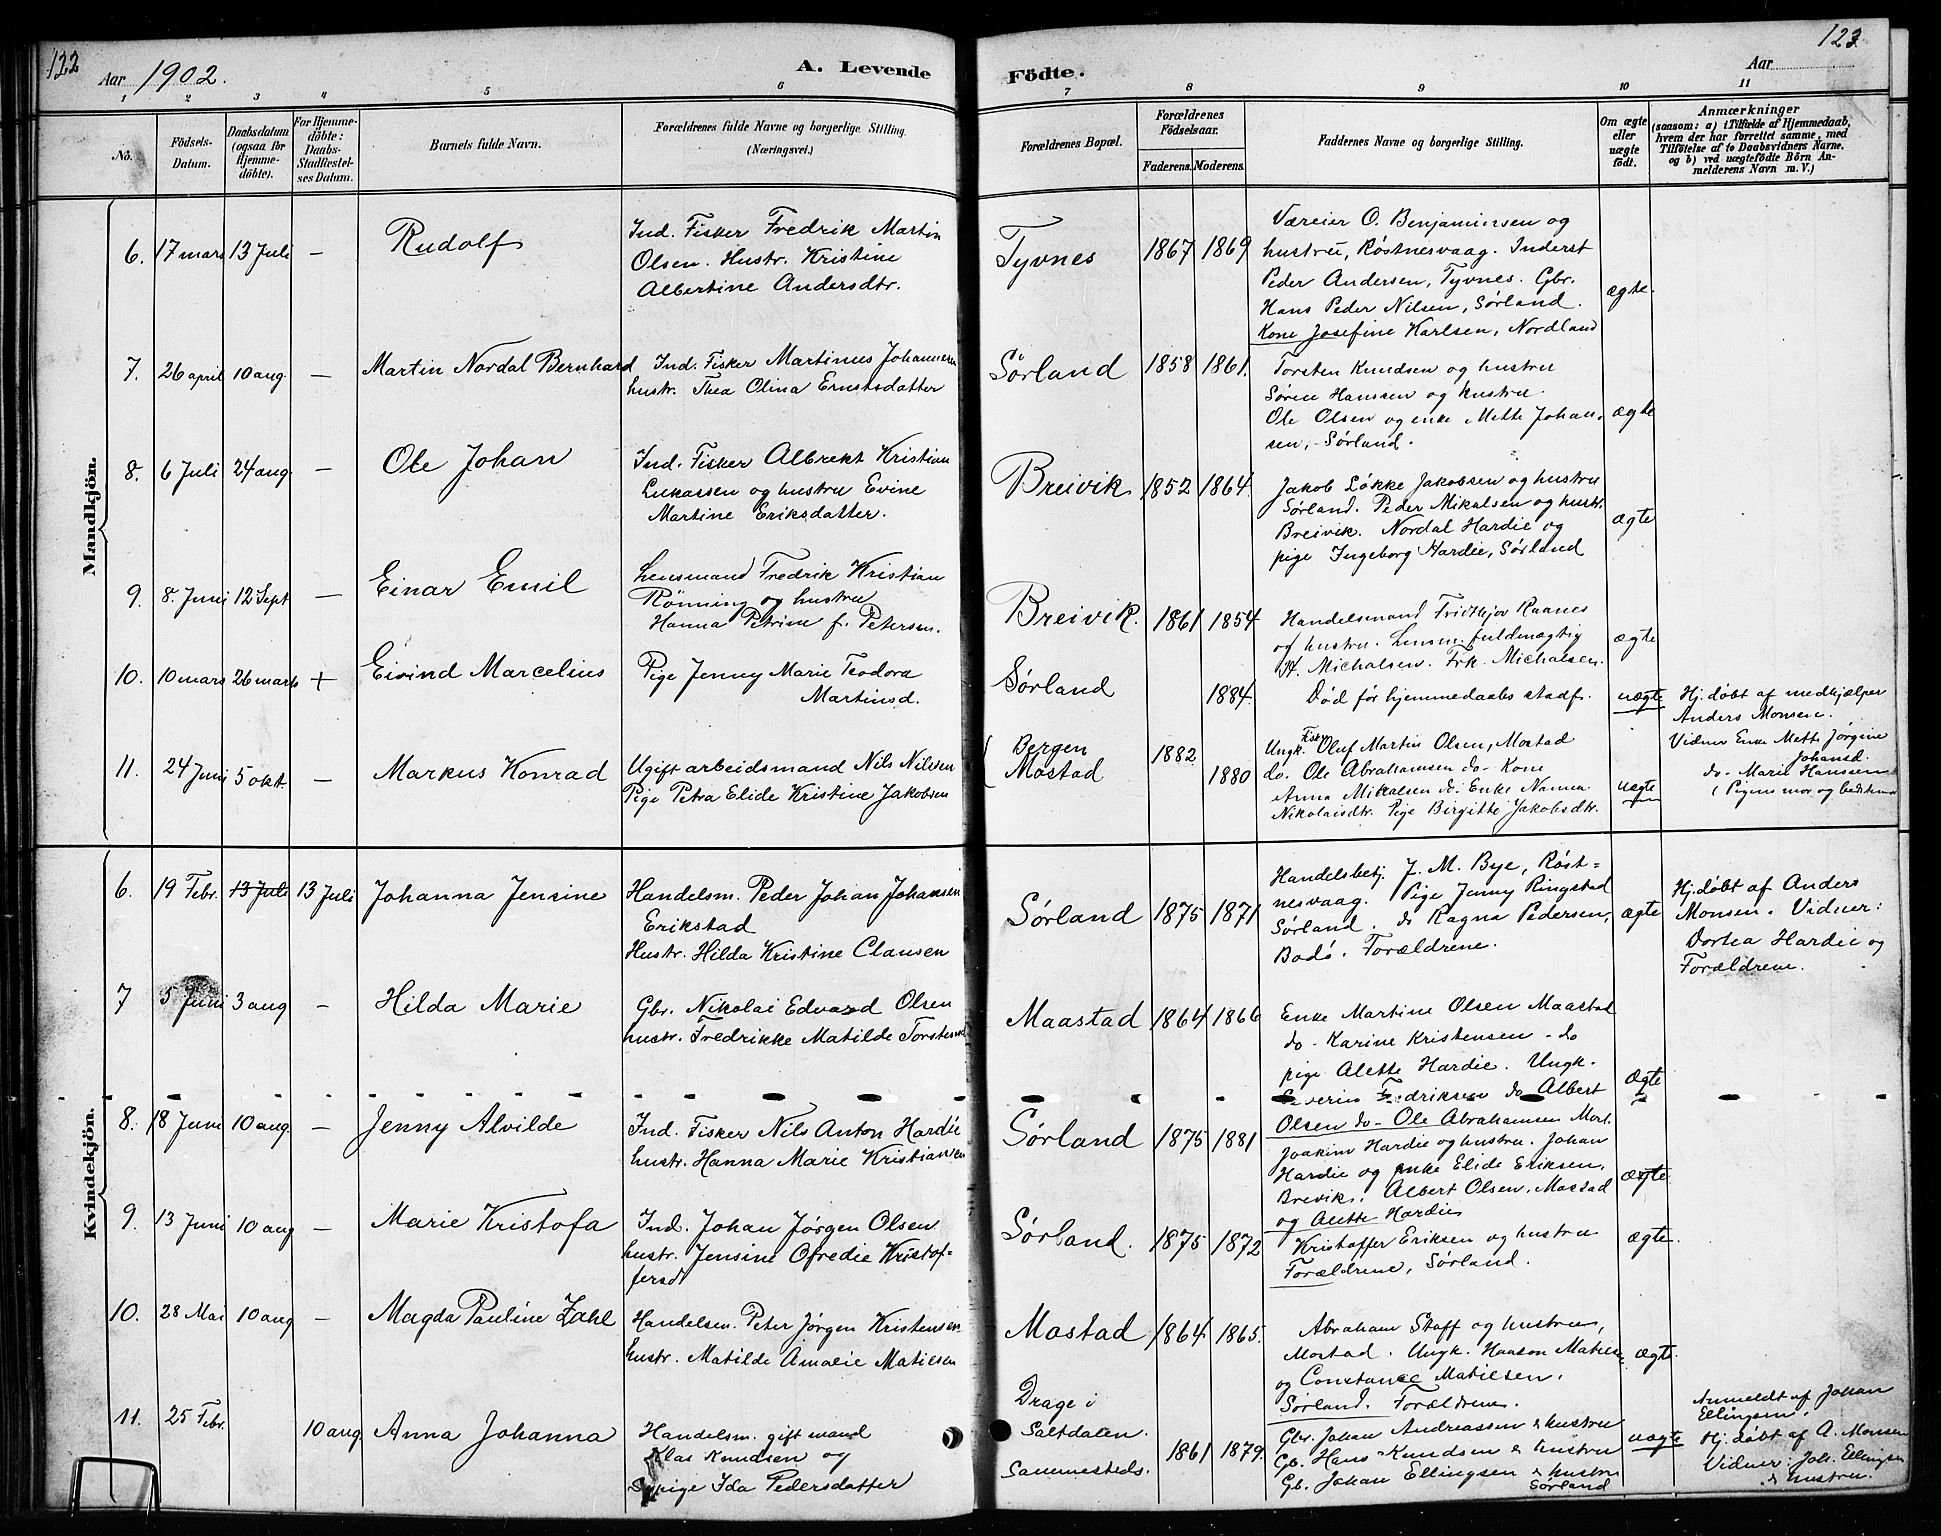 122
Aar 1902.
A. Levende
Födte.
Aar
123
1 2 3 4 5 6 7 8 9 10 11
No.
Födsels-
Datum.
Daabsdatum
(ogsaa for
Hjemme-
döbte).
For Hjemme-
döbte:
Daabs-
Stadfæstel-
ses Datum.
Barnets fulde Navn.
Forældrenes fulde Navne og borgerlige Stilling.
(Næringsvei.)
Forældrenes Bopæl.
Forældrenes
Födselsaar.
Faderens. Moderens.
Faddernes Navne og borgerlige Stilling.
Om ægte
eller
uægte
födt.
Anmærkninger
(saasom: a) i Tilfælde af Hjemmedaab,
hvem der har forrettet samme, med
Tilföielse af to Daabsvidners Navne,
og b) ved uægtefödte Börn An-
melderens Navn m. V.)
Mandkjön.
6. 17 mars 13 Juli — Rudolf
Ind. Fisker Fredrik Martin
Olsen. Hustr. Kristine
Albertine Andersdtr.
Tyvnes 1867 1869
Væreier O. Benjaminsen og
hustru, Røstnesvaag. Inderst
Peder Andersen, Tyvnes. Gbr.
Hans Peder Nilsen, Sørland.
Kone Josefine Karlsen, Nordland
ægte.
7. 26 april 10 aug. — Martin Nordal Bernhard
Ind. Fisker Martinus Johannesen
hustr. Thea Olina Ernstsdatter
Sørland 1858 1861.
Torsten Knudsen og hustru
Sören Hanssen og hustru
Ole Olsen og enke Mette Johan-
sen, Sørland.
ægte
8. 6 Juli 24 aug — Ole Johan
Ind. Fisker Albrekt Kristian
Lukassen og hustru Evine
Martine Eriksdatter.
Breivik 1852 1864.
Jakob Løkke Jakobsen og hustru
Sørland. Peder Mikalsen og hustr.
Breivik. Nordal Hardie og
pige Ingeborg Hardie, Sørland
ægte
9. 8. Juni 12 Sept — Einar Emil
Lensmand Fredrik Kristian
Rönning og hustru
Hanna Petrine f. Petersen.
Breivik. 1861 1854
Handelsmand Fridtkjov Raanes
og hustru. Lensm. fuldmægtig
Michalsen. Frk. Michalsen.
ægte
10. 10 mars 26 mars + Eivind Marcelius
Pige Jenny Marie Teodora
Martinsd.
Sørland 1884.
Død før hjemmedaabs stadf.
uægte
Hj. døbt af medhjælper
Anders Monsen.
Vidner Enke Mette Jørgine
Johansd.
do - Marie Hanssen
(Pigens mor og
11. 24 Juni 5 okt. — Markus Konrad
Ugift arbeidsmand Nils Nilsen
Pige Petra Elide Kristine Jakobsen
Bergen 1882
Mostad 1880
Ungk. Fisk. Oluf Martin Olsen, Mostad
do. Ole Abrahamsen do - Kone
Anna Mikalsen do. Enke Nanna
Nikolaisdtr. Pige Birgitte Jakobsdtr.
uægte
Kvindekjön.
6. 19 Febr. 13 Juli 13 Juli Johanna Jensine
Handelsm. Peder Johan Johansen
Erikstad
Hustr. Hilda Kristine Clausen
Sørland 1875 1871
Handelsbetj. J. M. Bye, Røst=
nesvaag. Pige Jenny Ringstad
Sørland. do Ragna Pedersen,
Bodö. Forældrene.
ægte
Hj. døbt af Anders
Monsen. Vidner:
Dortea Hardie og
Forældrene.
7 5 Juni 3 aug — Hilda Marie
Gbr. Nikolai Edvard Olsen
hustr. Fredrikke Matilde Torstensd
Maastad 1864 1866
Enke Martine Olsen Maastad
do - Karine Kristensen - do
pige Alette Hardie. Ungk.
Severin Fredriksen do Albert
Olsen do - Ole Abrahamsen Most.
ægte
8. 18 Juni 10 aug. — Jenny Alvilde
Ind. Fisker Nils Anton Hardie
hustr. Hanna Marie Kristiansen
Sørland 1875 1881
Joakim Hardie og hustru. Johan
Hardie og enke Elide Eriksen,
Brevik. Albert Olsen, Mostad
og Alette Hardie
ægte.
9. 13 Juni 10 aug — Marie Kristofa
Ind. Johan Jørgen Olsen
hustr. Jensine Ofredie Kristof=
fersdt
Sørland. 1875 1872
Kristoffer Eriksen og hustru
Forældrene, Sørland.
ægte.
10. 28 Mai 10 aug — Magda Pauline Zahl
Handelsm. Peter Jörgen Kristensen
hustr. Matilde Amalie Matisen
Mostad 1864 1865.
Abraham Staff og hustru,
Mostad. Ungk. Haakon
og Constance Matilsen.
Sørland. Forældrene.
ægte.
11. 25 Febr. 10 aug Anna Johanna
Handelsm. gift mand
Klas Knudsen og
pige Ida Pedersdatter
Drage i
Saltdalen.
Sammesteds. 1861 1879.
Gbr. Johan Andreassen & hustru
Gb. Hans Knudsen & hustru
Gb. Johan Ellingsen & hustru
Sørland
uægte
Anmeldt af Johan
Ellingsen.
Hj. døbt af A. Monsen
Vidner: Joh. Ellingsen
& hustru.